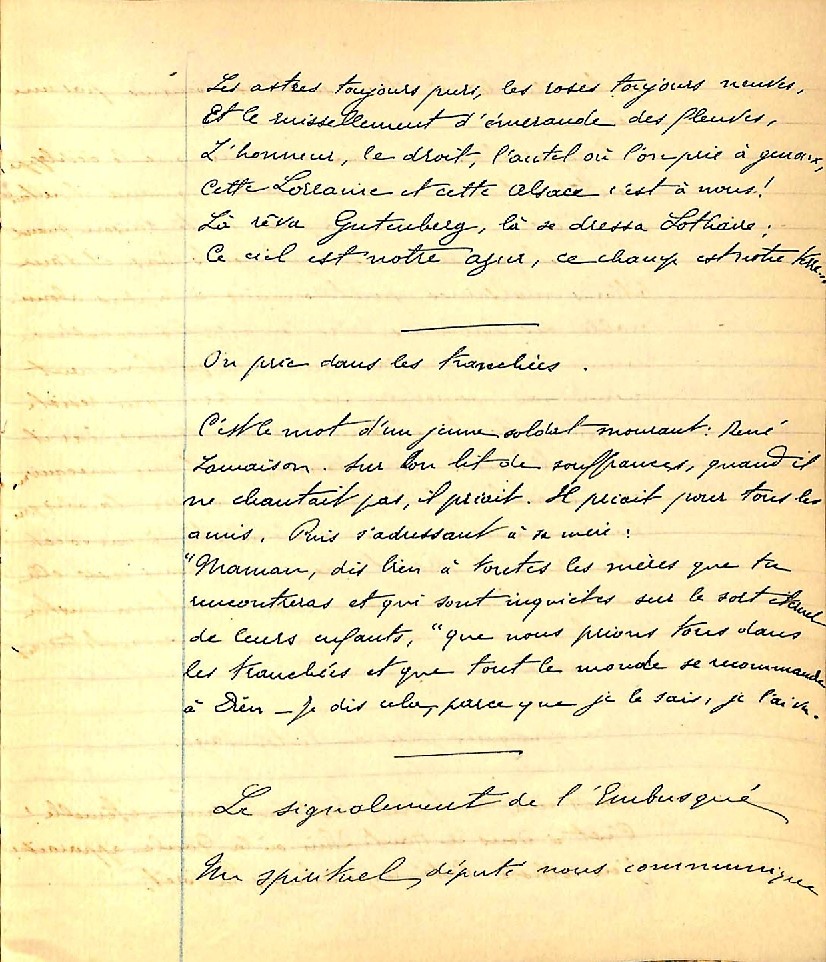 Les astres toujours purs, les roses toujours neuves,
Et le ruissellement d'émeraude des fleuves,
L'honneur, le droit, l'autel où l'on prie à genoux,
Cette Lorraine et cette Alsace c'est à nous!
Là rêva Gutenberg, là se dressa Lothaire;
Ce ciel est notre azur, ce champ est notre terre..
On prie dans les tranchées.
C'est le mot d'un jeune soldat mourant: René
Lamaison. Sur son lit de souffrances, quand il
ne chantait pas, il priait. Il priait pour tous les
amis. Puis s'adressant à sa mère:
"Maman, dis bien à toutes les mères que tu
rencontreras et qui sont inquiètes sur le sort éternel
de leurs enfants, "que nous prions tous dans
les tranchées et que tout le monde se recommande
à Dieu - Je dis cela, parce que je le sais, je l'ai vu.
Le signalement de l'Embusqué
Un spirituel député nous communique